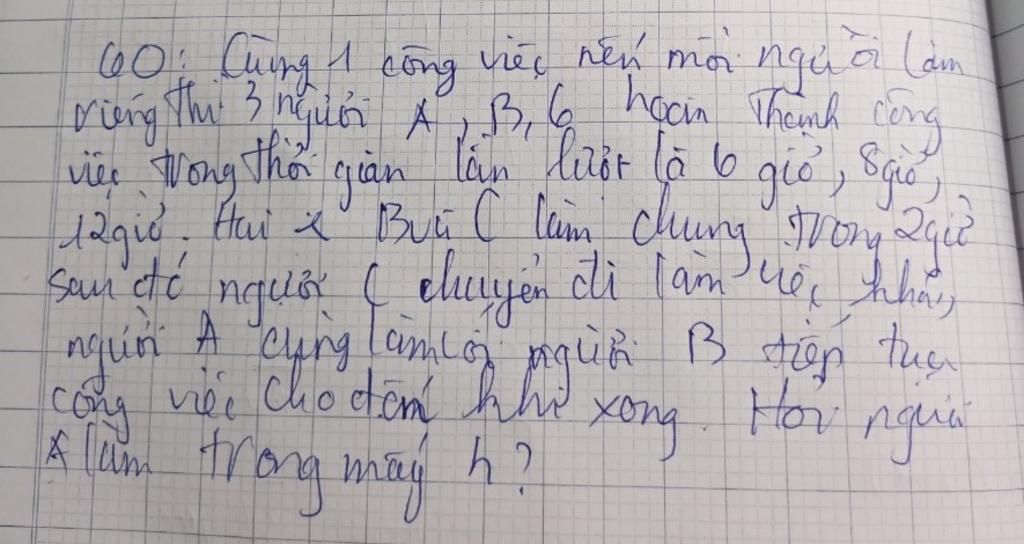 60: Cùng 1 công việc nếu mỗi người làm
riêng thì 3 người A, B, C hoàn thành công
việc trong thời gian lần lượt là 6 giờ, 8giờ,
12giờ. Hai B và C làm chung trong 2giờ
sau đó người C chuyển đi làm việc khác,
người A cùng làm với người B tiếp tục
công việc cho đến khi xong. Hỏi người
A làm trong mấy h?